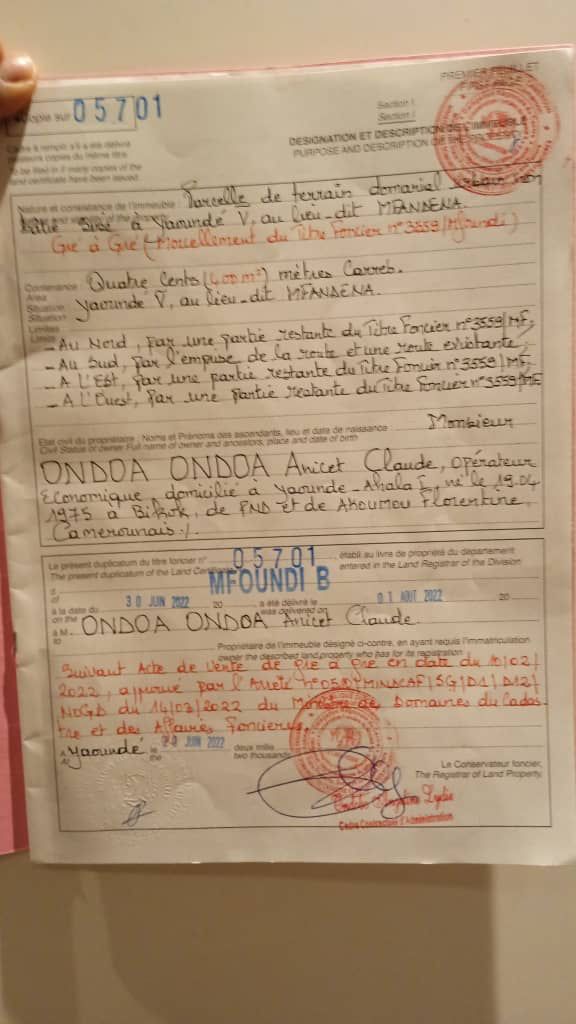 PREMIER FEUILLET
Copie sur 05701
Section I
Section I
Cadre à remplir s'il a été délivré
plusieurs copies du même titre
To be filled in if many copies of the
land certificate have been issued
DESIGNATION ET DESCRIPTION DE L'IMMEUBLE
PURPOSE AND DESCRIPTION OF THE
Nature et consistance de l'immeuble : Parcelle de terrain domanial urbain non
bâtie Sise à Yaoundé V, au lieu-dit MFANDENA.
Gré à Gré (Morcellement du Titre Foncier n°3559/Mfoundi)
Contenance : Quatre Cents (400m²) mètres Carrés.
Area
Situation : Yaoundé V, au lieu-dit MFANDENA.
Situation
Limites
Limits
- Au Nord, par une partie restante du Titre Foncier n°3559/MF.
- Au Sud, par l'emprise de la route et une route existante,
- A L'Est, par une partie restante du Titre Foncier n°3559/MF
- A L'Ouest, par une partie restante du Titre Foncier n°3559/MF
Etat civil du propriétaire : Noms et Prénoms des ascendants, lieu et date de naissance : Monsieur
Civil Status of owner Full name of owner and ancestors, place and date of birth
ONDOA ONDOA Anicet Claude, Opérateur
Economique, domicilié à Yaoundé-Ahala I, né le 19.04
1975 à Bikok, de PND et de AKOUMOU Florentine,
Camerounais./.
Le présent duplicatum du titre foncier n° 05701 établi au livre de propriété du département
The present duplicatum of the Land Certificate entered in the Land Registrar of the Division
of MFOUNDI B
à la date du 30 JUIN 2022 20 a été délivré le 01 AOUT 2022 20
on the was delivered on
à M. ONDOA ONDOA Anicet Claude.
to
Propriétaire de l'immeuble désigné ci-contre, en ayant requis l'immatriculation
owner the described land property who has for its registration
Suivant Acte de Vente de Gré à Gré en date du 10/02/
2022, approuvé par l'Arrêté N°050/MINDCAF/SG/D1/D12/
du 14/03/2022 du Ministre de Domaines du Cadas-
tre et des Affaires Foncières.
A Yaoundé le 20 JUIN 2022 deux mille
At the two thousand
Le Conservateur foncier,
The Registrar of Land Property,
Lydie
Cadre Contractuel d'Administration